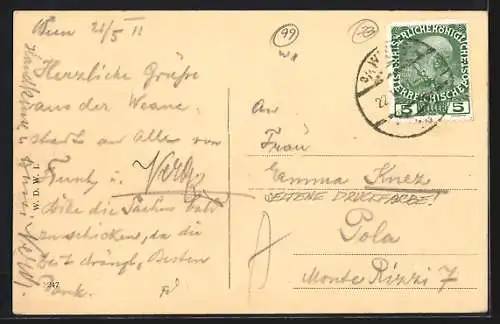 Wien 21/5 11
Herzliche Grüsse
aus der Weane-
stadt an Alle von
u.
Bitte die Sachen bald
zu schicken, da die
Zeit drängt, Besten
Dank.
99
W. D. W. I.
247
An
Frau
Emma Knez
SELTENE DRUCKFARBE!
Pola
Monte Rizzi 7
KAISERLICHE KÖNIGLICHE
ÖSTERREICHISCHE POST
5 HELLER 5